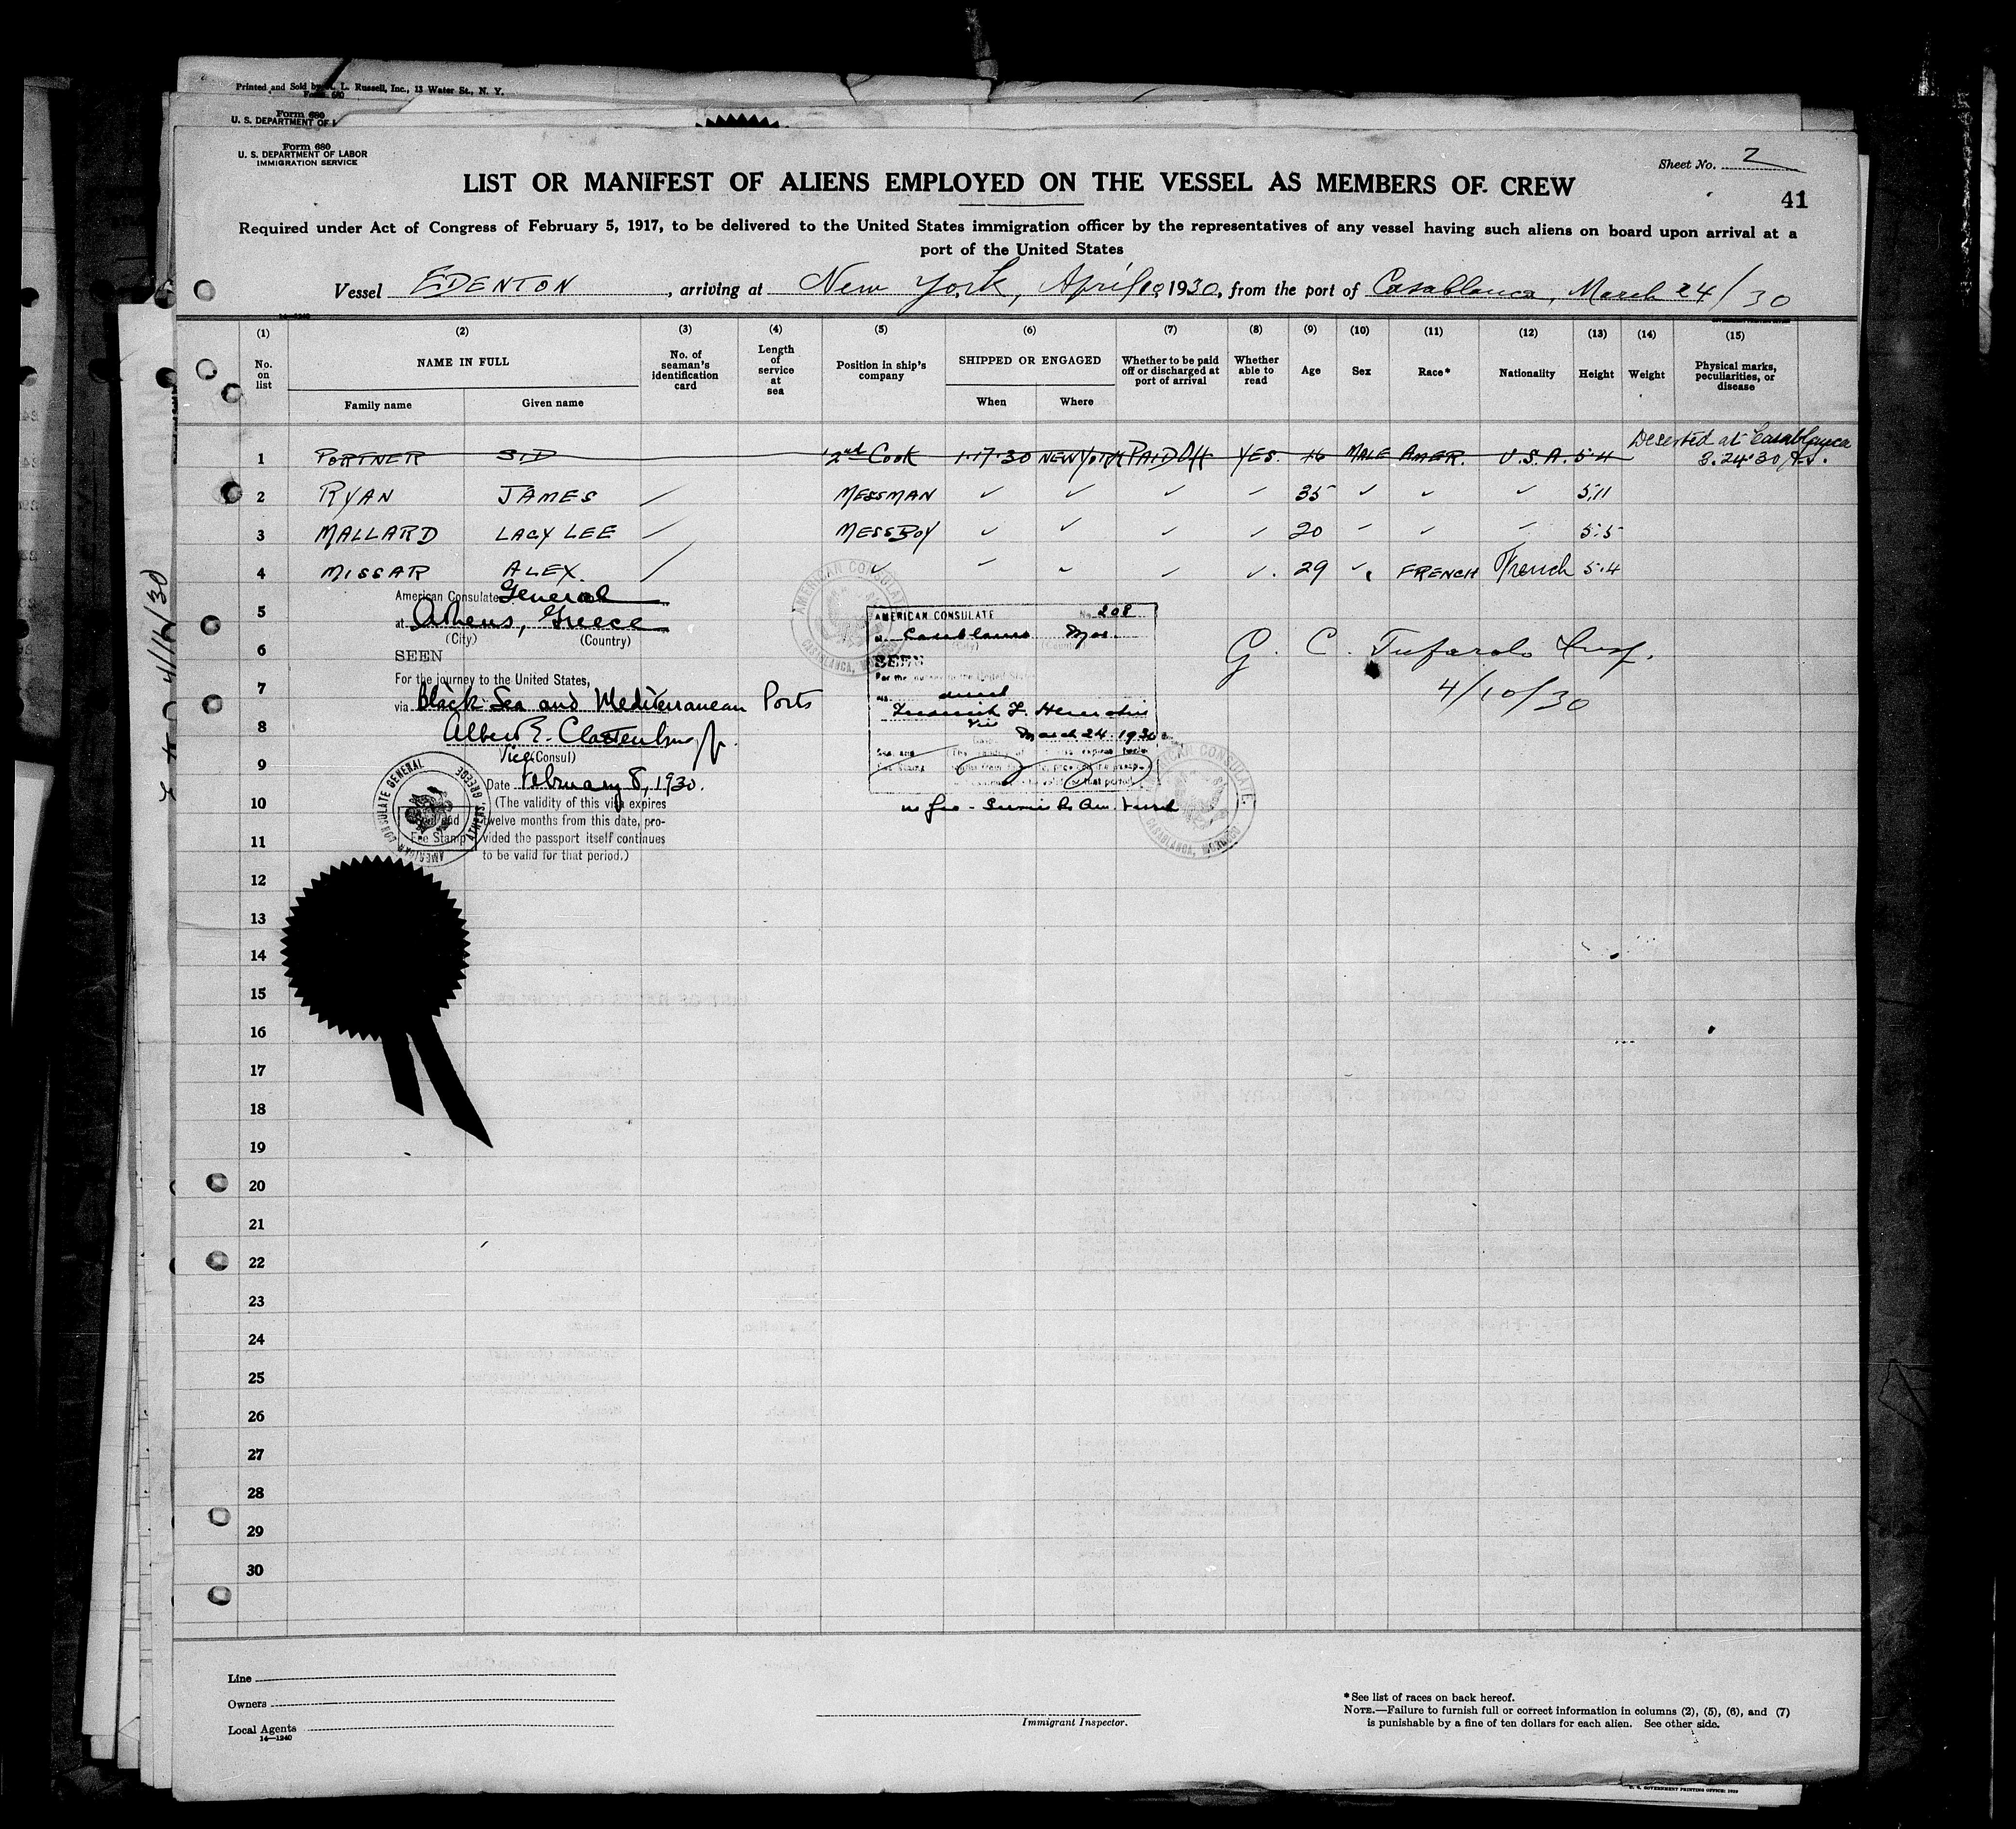 Printed and Sold by L. Russell, Inc., 13 Water St., N. Y.
Form 680
Form 680
U. S. DEPARTMENT OF
Form 680
U. S. DEPARTMENT OF LABOR
IMMIGRATION SERVICE
Sheet No. 2
LIST OR MANIFEST OF ALIENS EMPLOYED ON THE VESSEL AS MEMBERS OF CREW
41
Required under Act of Congress of February 5, 1917, to be delivered to the United States immigration officer by the representatives of any vessel having such aliens on board upon arrival at a
port of the United States
Vessel EDENTON, arriving at New York, April 10, 1930, from the port of Casablanca, March 24/30
14—1240
(1) (2) (3) (4) (5) (6) (7) (8) (9) (10) (11) (12) (13) (14) (15)
No. on list NAME IN FULL No. of seaman's identification card Length of service at sea Position in ship's company SHIPPED OR ENGAGED Whether to be paid off or discharged at port of arrival Whether able to read Age Sex Race* Nationality Height Weight Physical marks, peculiarities, or disease
Family name Given name When Where
Deserted at Casablanca
1 PORTNER SID 2nd Cook 1-17-30 NEW YORK PAID Off YES. 16 MALE AMER. U.S.A. 5-4 3.24.30
2 RYAN JAMES / MESSMAN ✓ ✓ ✓ ✓ 35 ✓ ✓ ✓ 5.11
3 MALLARD LACY LEE / MESSBOY ✓ ✓ ✓ ✓ 20 ✓ ✓ ✓ 5.5
4 MISSAR ALEX. / ✓ ✓ ✓ ✓ ✓. 29 ✓ FRENCH French 5.4
American Consulate General
5
at Athens, Greece
(City) (Country)
6
SEEN
For the journey to the United States,
7
via Black Sea and Mediterranean Ports
8
Albert E. Clattenburg Jr.
Vice (Consul)
9
Date February 8, 1930.
10
(The validity of this visa expires
twelve months from this date, pro-
11
vided the passport itself continues
to be valid for that period.)
Fee Stamp
AMERICAN CONSULATE GENERAL ATHENS, GREECE
AMERICAN CONSULATE
CASABLANCA, MOROCCO
AMERICAN CONSULATE No. 208
at Casablanca Mor.
(City) (Country)
SEEN
For the journey to the United States
via direct
Vice
March 24, 1930
that period
no fee - Am. Vessel
AMERICAN CONSULATE
CASABLANCA, MOROCCO
G. C. Tufarolo Insp.
4/10/30
12
13
14
15
16
17
18
19
20
21
22
23
24
25
26
27
28
29
30
Line
Owners
Local Agents
14—1240
Immigrant Inspector.
* See list of races on back hereof.
NOTE.—Failure to furnish full or correct information in columns (2), (5), (6), and (7)
is punishable by a fine of ten dollars for each alien. See other side.
U. S. GOVERNMENT PRINTING OFFICE: 1929